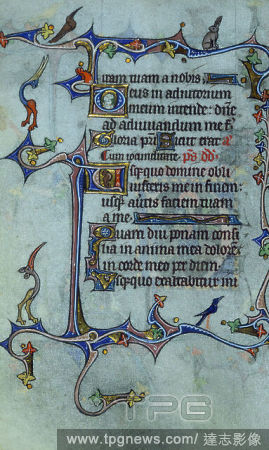 uram tuam a nobis.
Deus in adiutorium
meum intende: dñe
ad adiuvandum me f
Gloria pri Sicut erat
Cum iocunditate. ps dd.
Usquequo domine obli
visceris me in finem:
usq̄ avertis faciem tuam
a me.
Quam diu ponam consi
lia in anima mea dolorem
in corde meo per diem.
Usquequo exaltabitur ini
TPG
www.tpgnews.com/ 達志影像